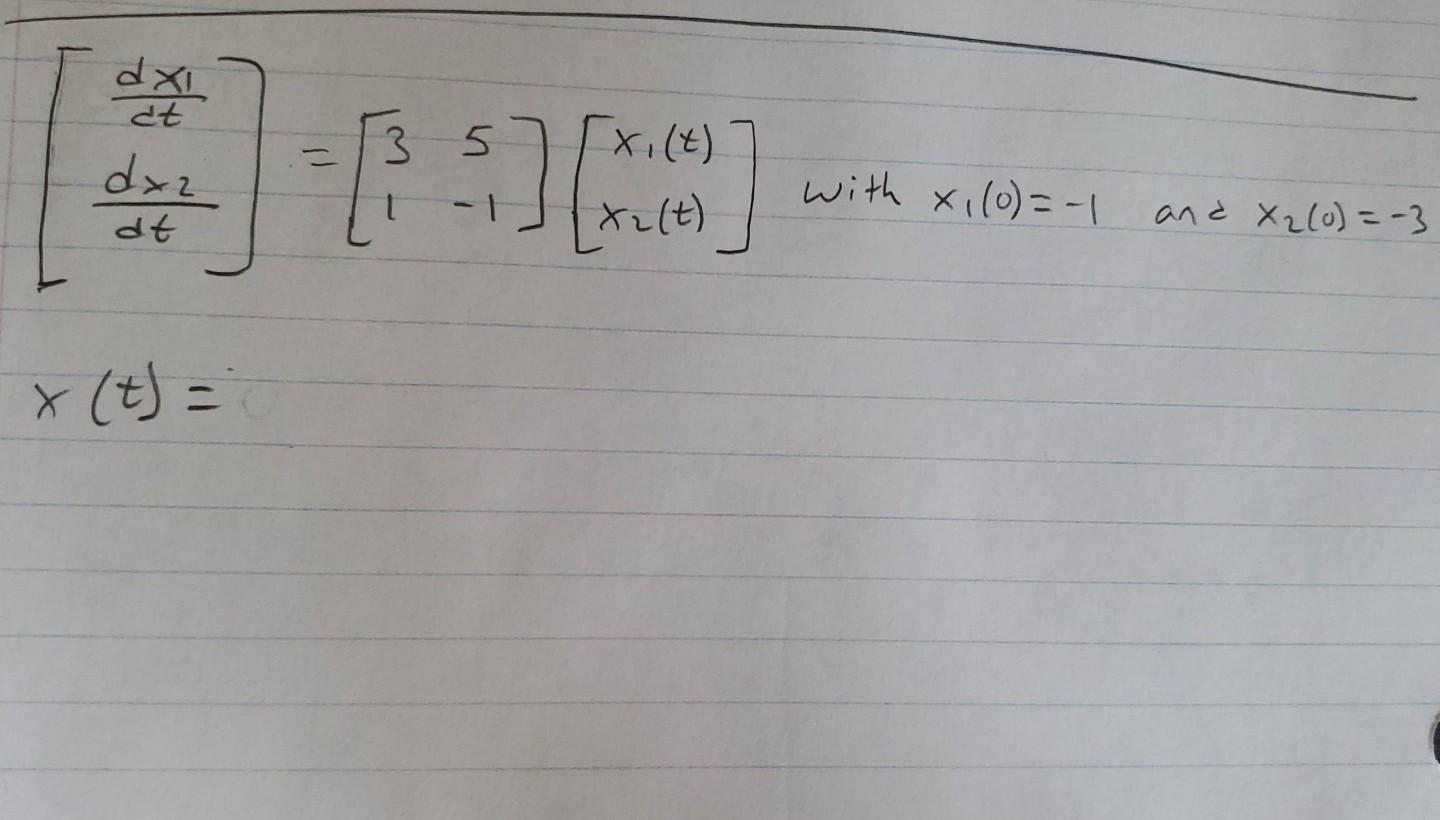 [dx1/dt dx2/dt] = [3 5 1 -1] [x1(t) x2(t)] with x1(0)=-1 and x2(0)=-3
x(t)=